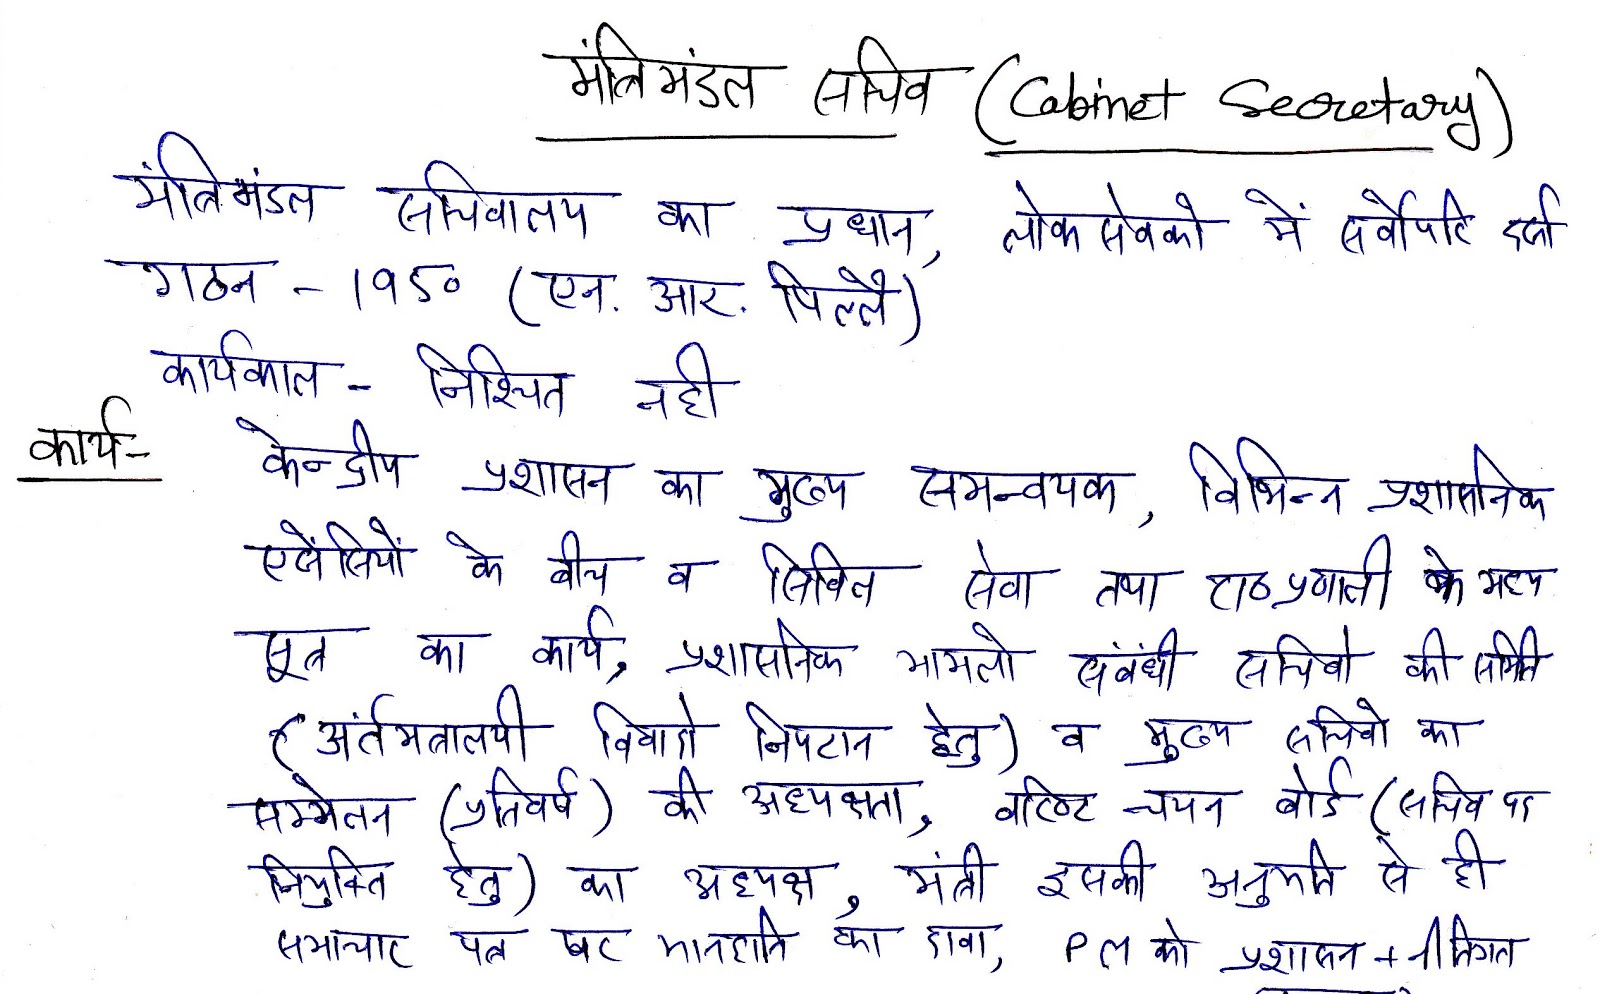 मंत्रिमंडल सचिव (Cabinet Secretary)
मंत्रिमंडल सचिवालय का प्रधान, लोकसेवको में सर्वोपरि दर्जा
गठन - 1950 (एन. आर. पिल्लै)
कार्यकाल - निश्चित नही
कार्य- केन्द्रीय प्रशासन का मुख्य समन्वयक, विभिन्न प्रशासनिक
एजेंसियों के बीच व सिविल सेवा तथा राजप्रणाली के मध्य
सूत्र का कार्य, प्रशासनिक मामलो संबंधी सचिवो की समिति
(अंर्तमंत्रालयी विवादो निपटान हेतु) व मुख्य सचिवो का
सम्मेलन (प्रतिवर्ष) की अध्यक्षता, वरिष्ट चयन बोर्ड (सचिव पद
नियुक्ति हेतु) का अध्यक्ष, मंत्री इसकी अनुमति से ही
समाचार पत्र पर मानहानि का दावा, PM को प्रशासन + नीतिगत